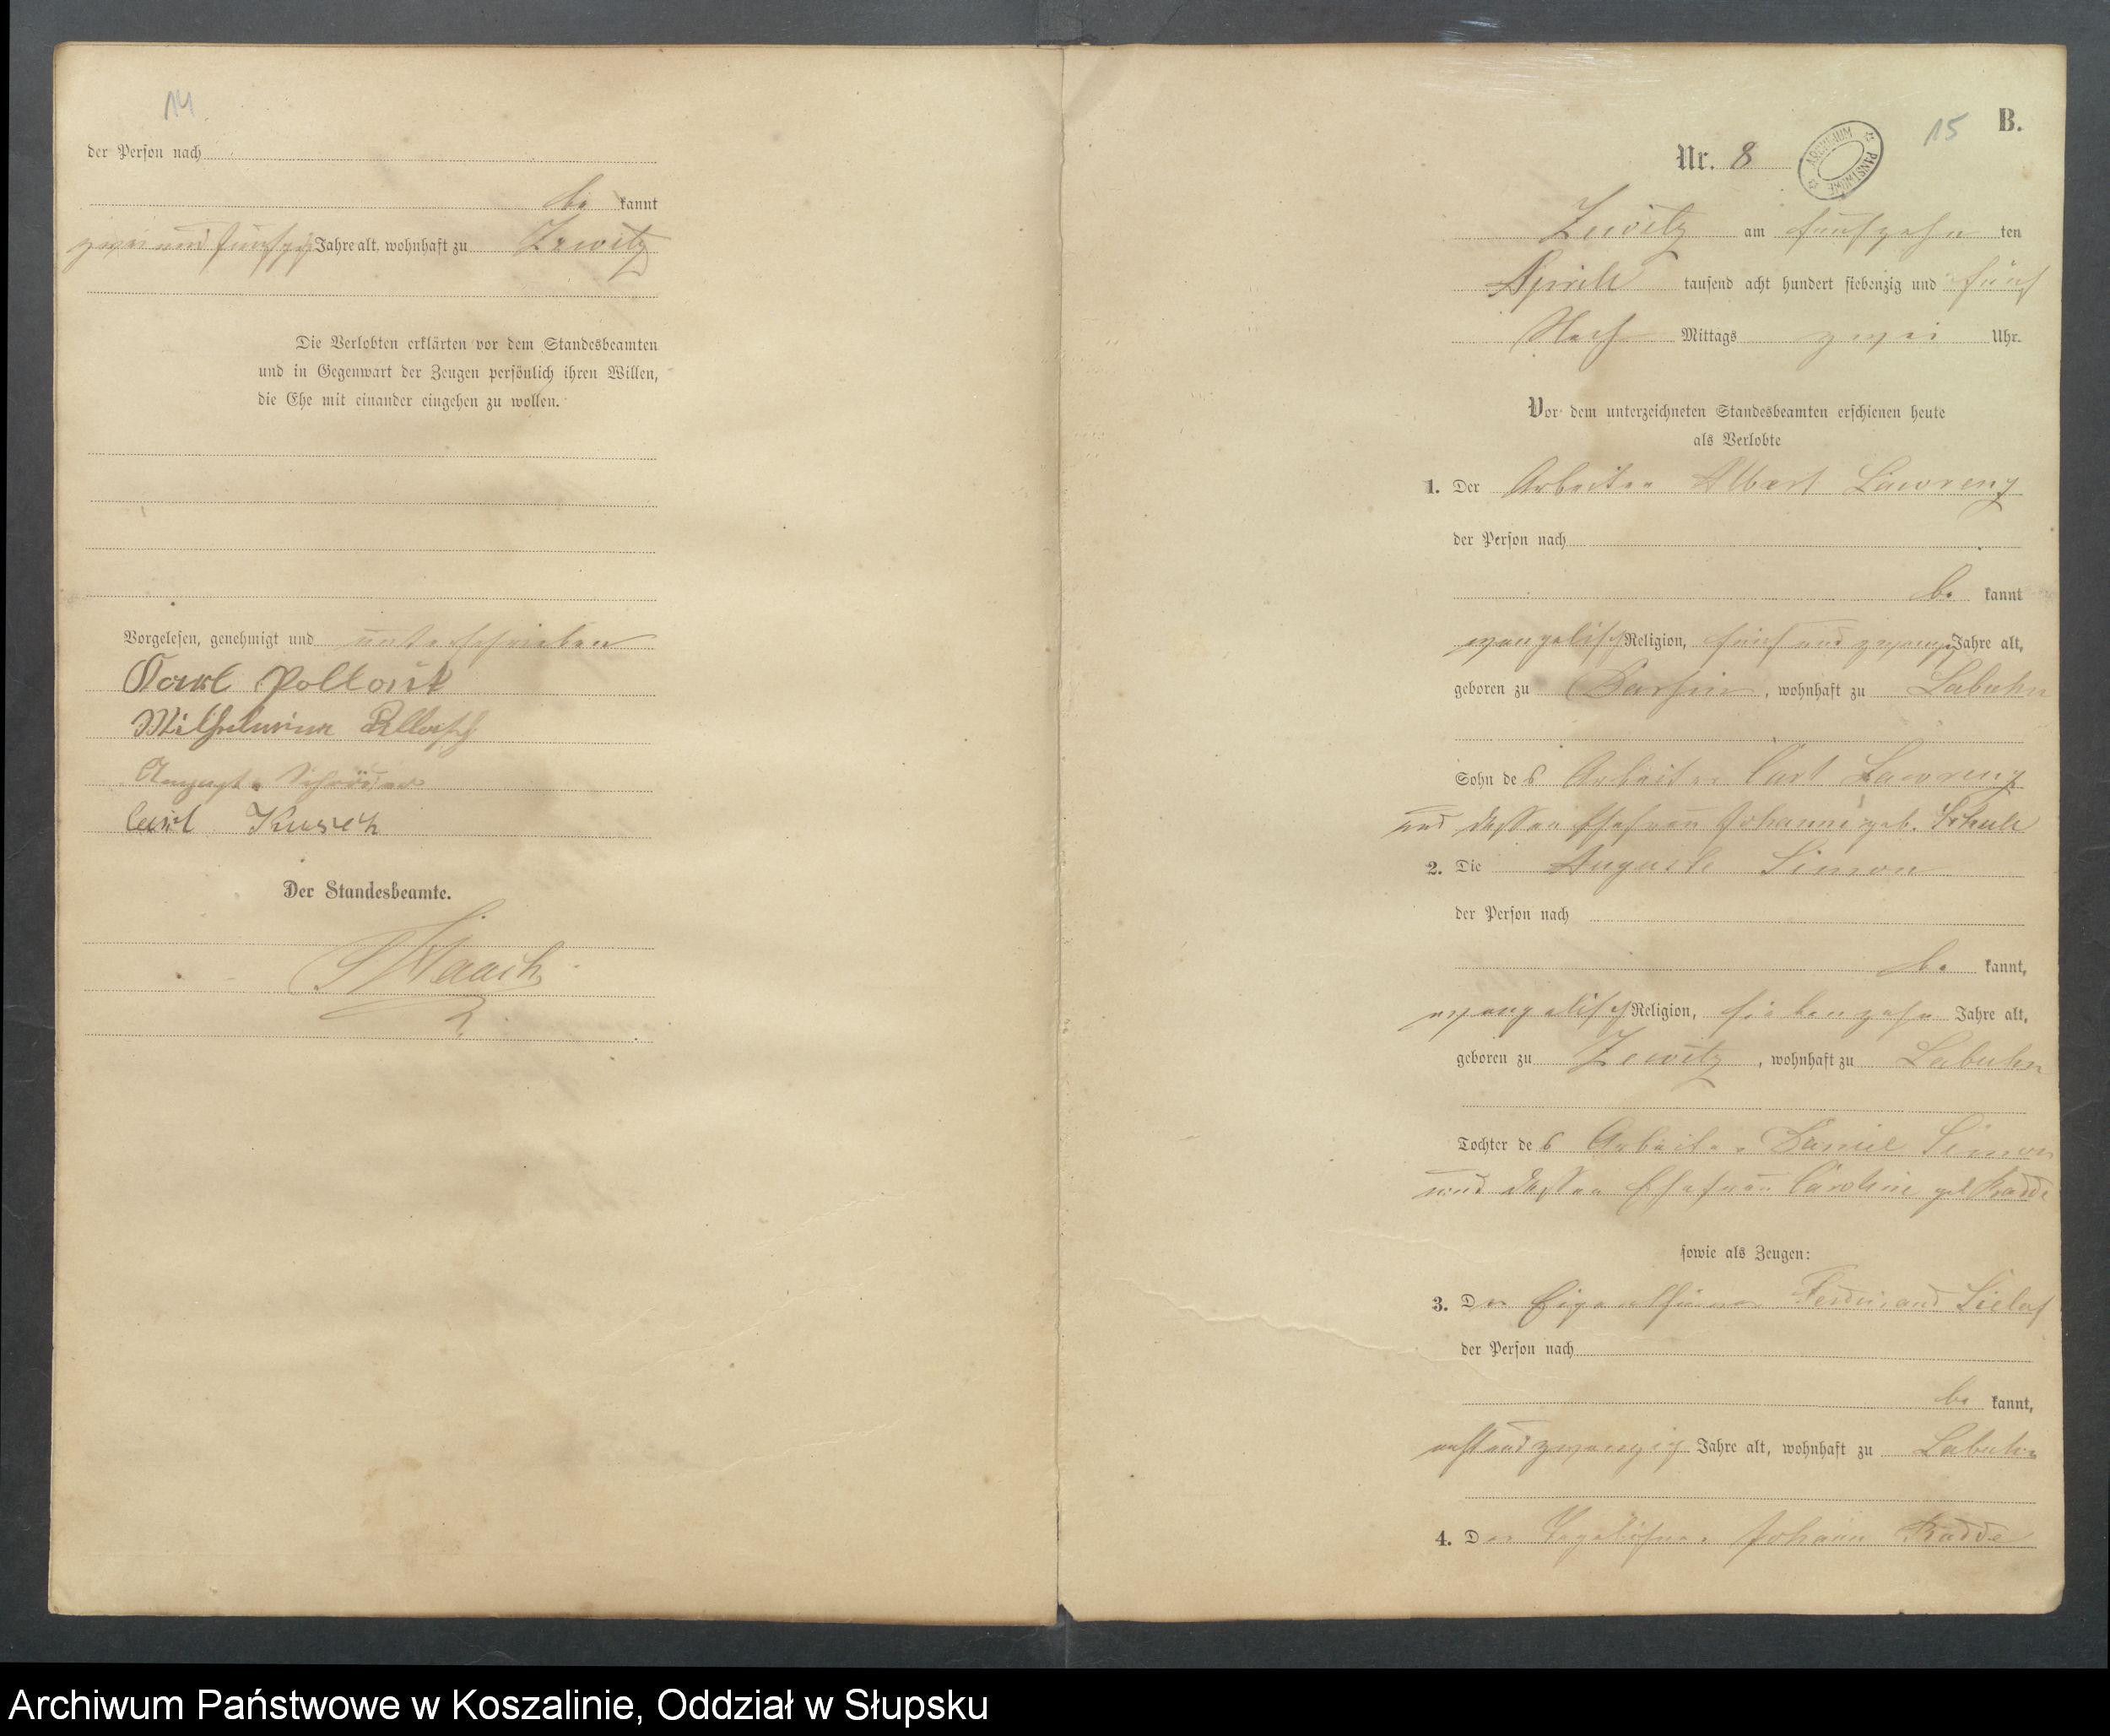 14
der Person nach
be kannt
zwei und fünfzig Jahre alt, wohnhaft zu Zewitz
Die Verlobten erklärten vor dem Standesbeamten
und in Gegenwart der Zeugen persönlich ihren Willen,
die Ehe mit einander eingehen zu wollen.
Vorgelesen, genehmigt und unterschrieben
Karl
Wilhelmine
August
Carl
Der Standesbeamte.
15
B.
Nr. 8
ARCHIWUM PAŃSTWOWE
Zewitz am fünfzehn ten
Aprill tausend acht hundert siebenzig und fünf
Nach Mittags zwei Uhr.
Vor dem unterzeichneten Standesbeamten erschienen heute
als Verlobte
1. Der Arbeiter Albert Lawrenz
der Person nach
be kannt
evangelisch Religion, fünf und zwanzig Jahre alt,
geboren zu , wohnhaft zu Labuhn
Sohn des Arbeiter Carl Lawrenz
und dessen Ehefrau Johanne geb.
2. Die Auguste Simon
der Person nach
be kannt,
evangelisch Religion, siebenzehn Jahre alt,
geboren zu Zewitz , wohnhaft zu Labuhn
Tochter des Arbeiter Daniel Simon
und dessen Ehefrau Caroline geb Radde
sowie als Zeugen:
3. Der Eigenthümer Ferdinand Sielaf
der Person nach
be kannt,
Jahre alt, wohnhaft zu Labuhn
4. Der Tagelöhner Johann Radde
Archiwum Państwowe w Koszalinie, Oddział w Słupsku